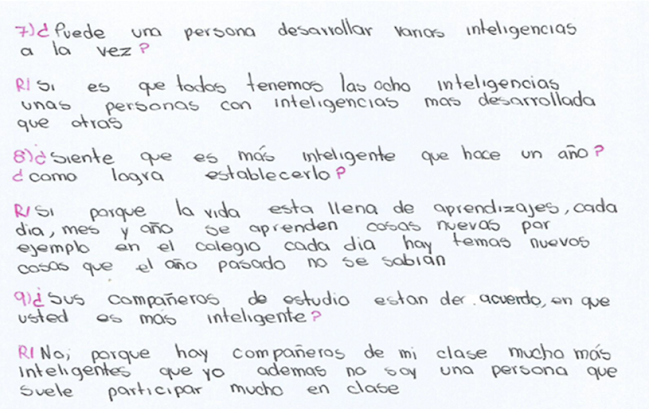 7)¿Puede una persona desarrollar varias inteligencias
a la vez?
R/ Si es que todos tenemos las ocho inteligencias
unas personas con inteligencias mas desarrollada
que otras
8)¿Siente que es más inteligente que hace un año?
¿como logra establecerlo?
R/ Si porque la vida esta llena de aprendizajes, cada
dia, mes y año se aprenden cosas nuevas por
ejemplo en el colegio cada dia hay temas nuevos
cosas que el año pasado no se sabian
9)¿Sus compañeros de estudio estan der acuerdo, en que
usted es mas inteligente?
R/ No, porque hay compañeros de mi clase mucho más
inteligentes que yo ademas no soy una persona que
suele participar mucho en clase